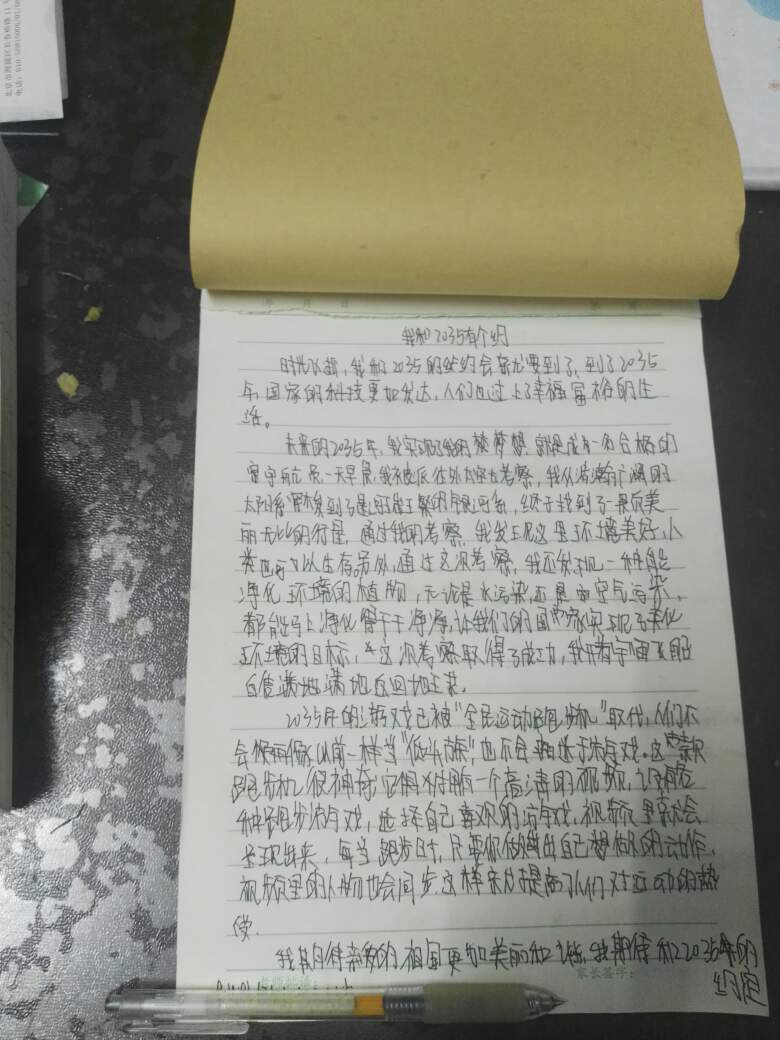 北京市海淀区长春桥路11号
电话：010-
年 月 日
我和2035有个约
时光飞逝，我和2035的约会就要到了，到了2035
年，国家的科技更加发达，人们也过上了幸福富裕的生
活。
未来的2035年，我实现了我的梦想，就是成为一名合格的
宇航员，一天早晨，我被派往外太空去考察，我从浩瀚广阔的
太阳系到了银河系，终于找到了一颗美
丽无比的行星，通过我的考察，我发现这里环境美好，人
类也可以生存。另外，通过这次考察，我还发现一种能
净化环境的植物，无论是水污染，还是空气污染，
都能马上净化得干干净净，让我们的国家实现了美化
环境的目标，这次考察取得了成功，我开着宇宙飞船
满地满地返回地球。
2035年的游戏已被“全民运动跑步机”取代，人们不
会再像以前一样当“低头族”，也不会沉迷于游戏。这款
跑步机很神奇，它附有一个高清的视频，设有各
种跑步游戏，选择自己喜欢的游戏，视频里就会
呈现出来，每当跑步时，只要你做出自己想做的动作，
视频里的人物也会同步，这样大大提高了人们对运动的热
情。
我期待亲爱的祖国更加美丽和谐，我期待和2035年的
约定
家长签字：